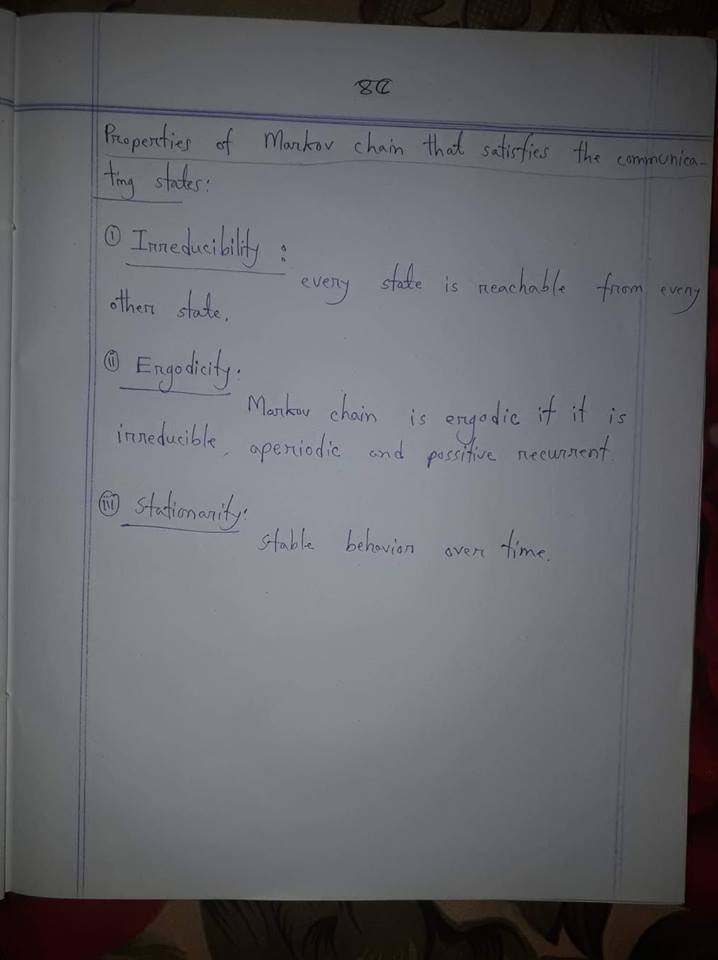 8C
Properties of Markov chain that satisfies the communica-
ting states:
(i) Irreducibility :
every state is reachable from every
other state.
(ii) Ergodicity.
Markov chain is ergodic if it is
irreducible, aperiodic and possitive recurrent.
(iii) Stationarity:
stable behavior over time.